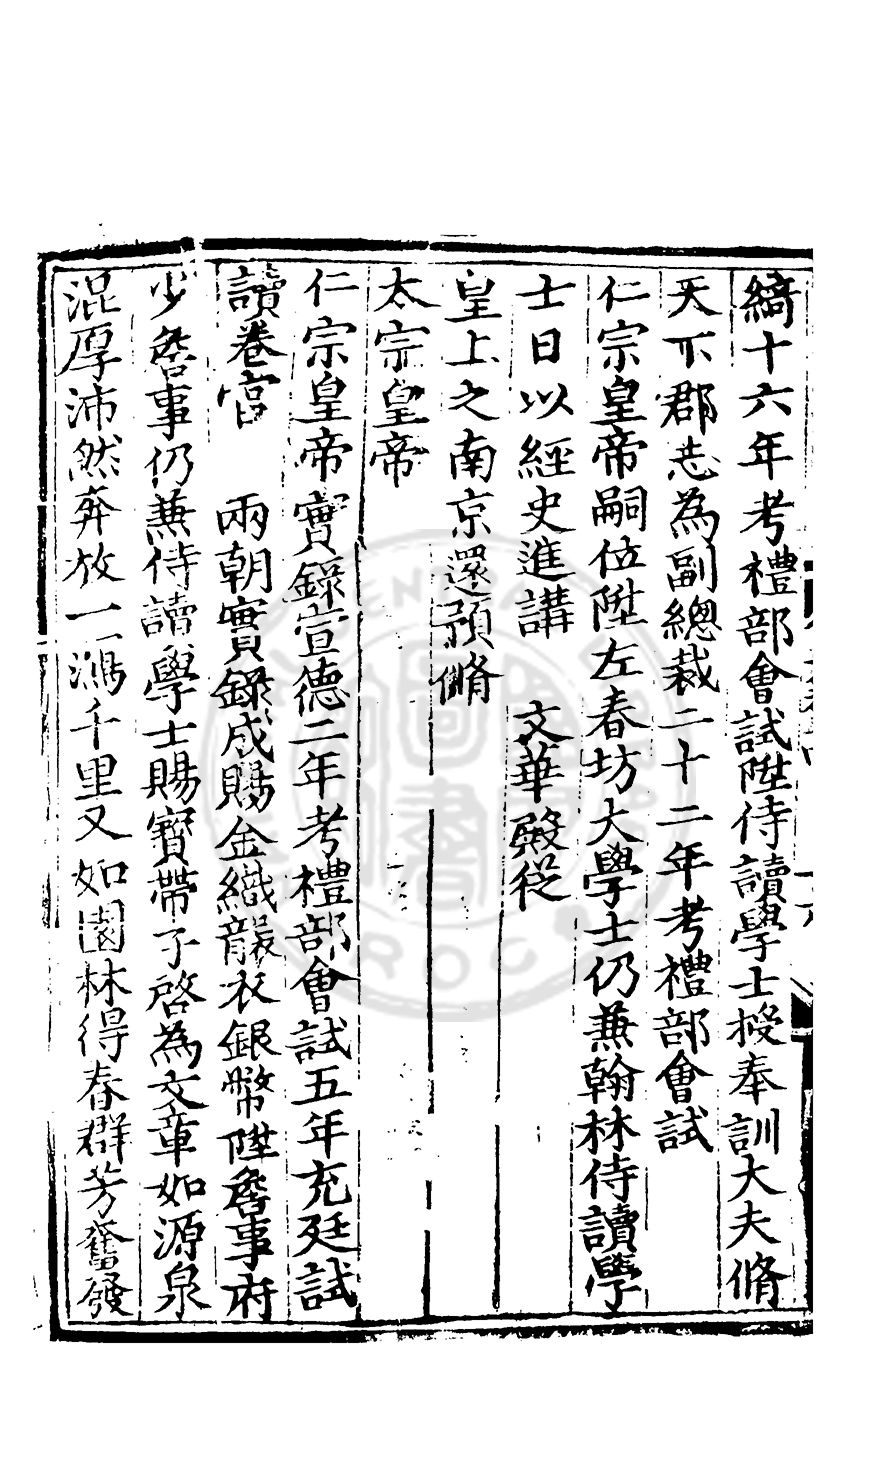 綺十六年考禮部會試陞侍讀學士授奉訓大夫脩
天下郡志為副總裁二十二年考禮部會試
仁宗皇帝嗣位陞左春坊大學士仍兼翰林侍讀學
士日以經史進講　文華殿從
皇上之南京還預脩
太宗皇帝
仁宗皇帝實錄宣德二年考禮部會試五年充廷試
讀卷官　兩朝實錄成賜金織襲衣銀幣陞詹事府
少詹事仍兼侍讀學士賜寳帶子啓為文章如源泉
混厚沛然奔放一瀉千里又如園林得春群芳奮發